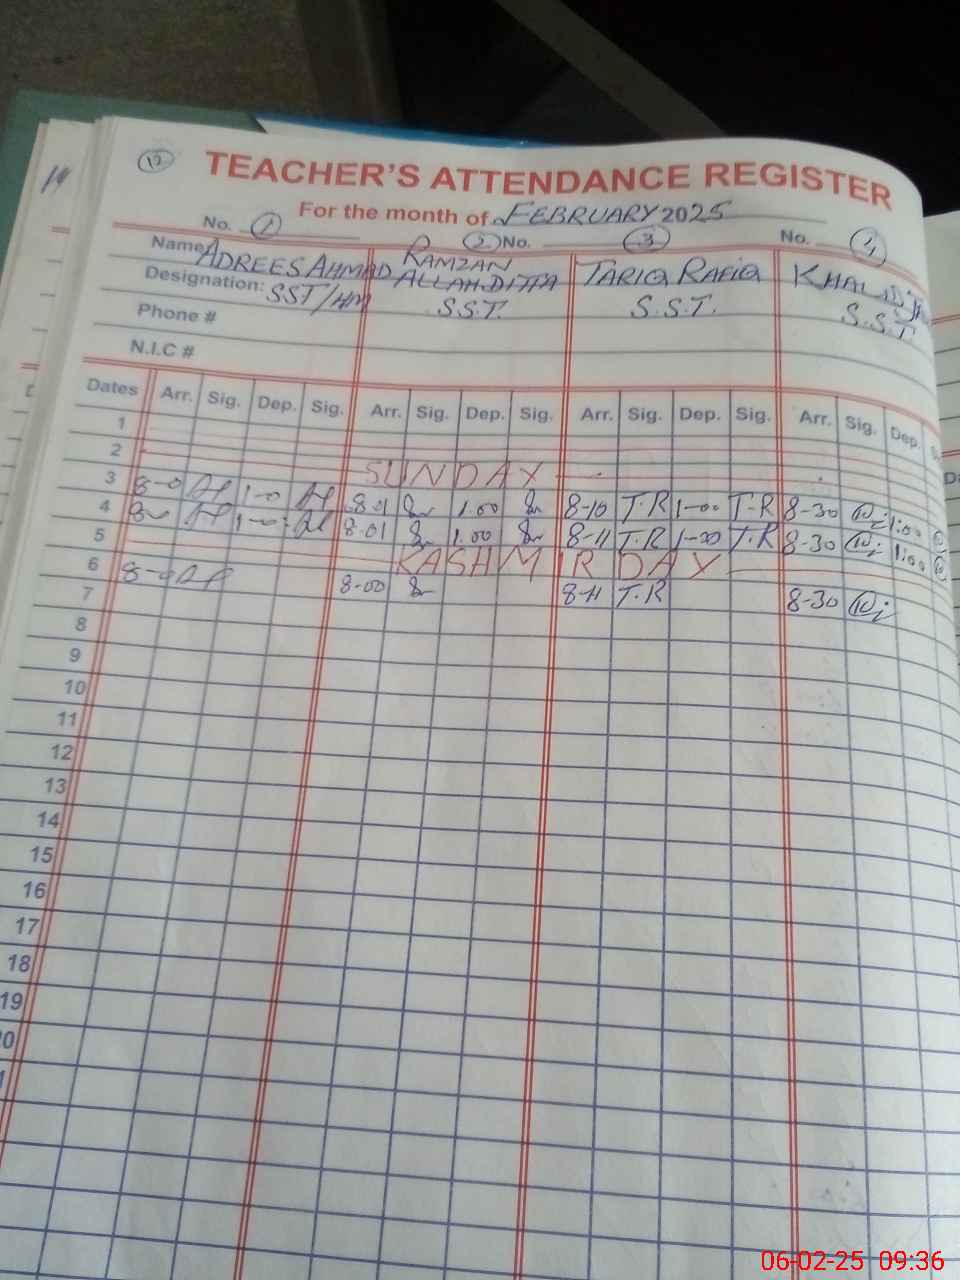 12 TEACHER'S ATTENDANCE REGISTER
14
For the month of FEBRUARY 2025
No. 1 2 No. 3 No. 4
Name ADREES AHMAD RAMZAN ALLAH DITTA TARIQ RAFIQ
Designation: SST/HM S.S.T. S.S.T. S.S.T.
Phone #
N.I.C #
Dates Arr. Sig. Dep. Sig. Arr. Sig. Dep. Sig. Arr. Sig. Dep. Sig. Arr. Sig. Dep.
1
2 SUNDAY
3 8-0 1-0 8-01 1.00 8-10 T.R 1-00 T-R 8-30 1:00
4 8-01 1.00 8-11 T.R 1-00 T.R 8-30 1:00
5 KASHMIR DAY
6 8-00 8-11 T.R 8-30
7
8
9
10
11
12
13
14
15
16
17
18
19
20
06-02-25 09:36